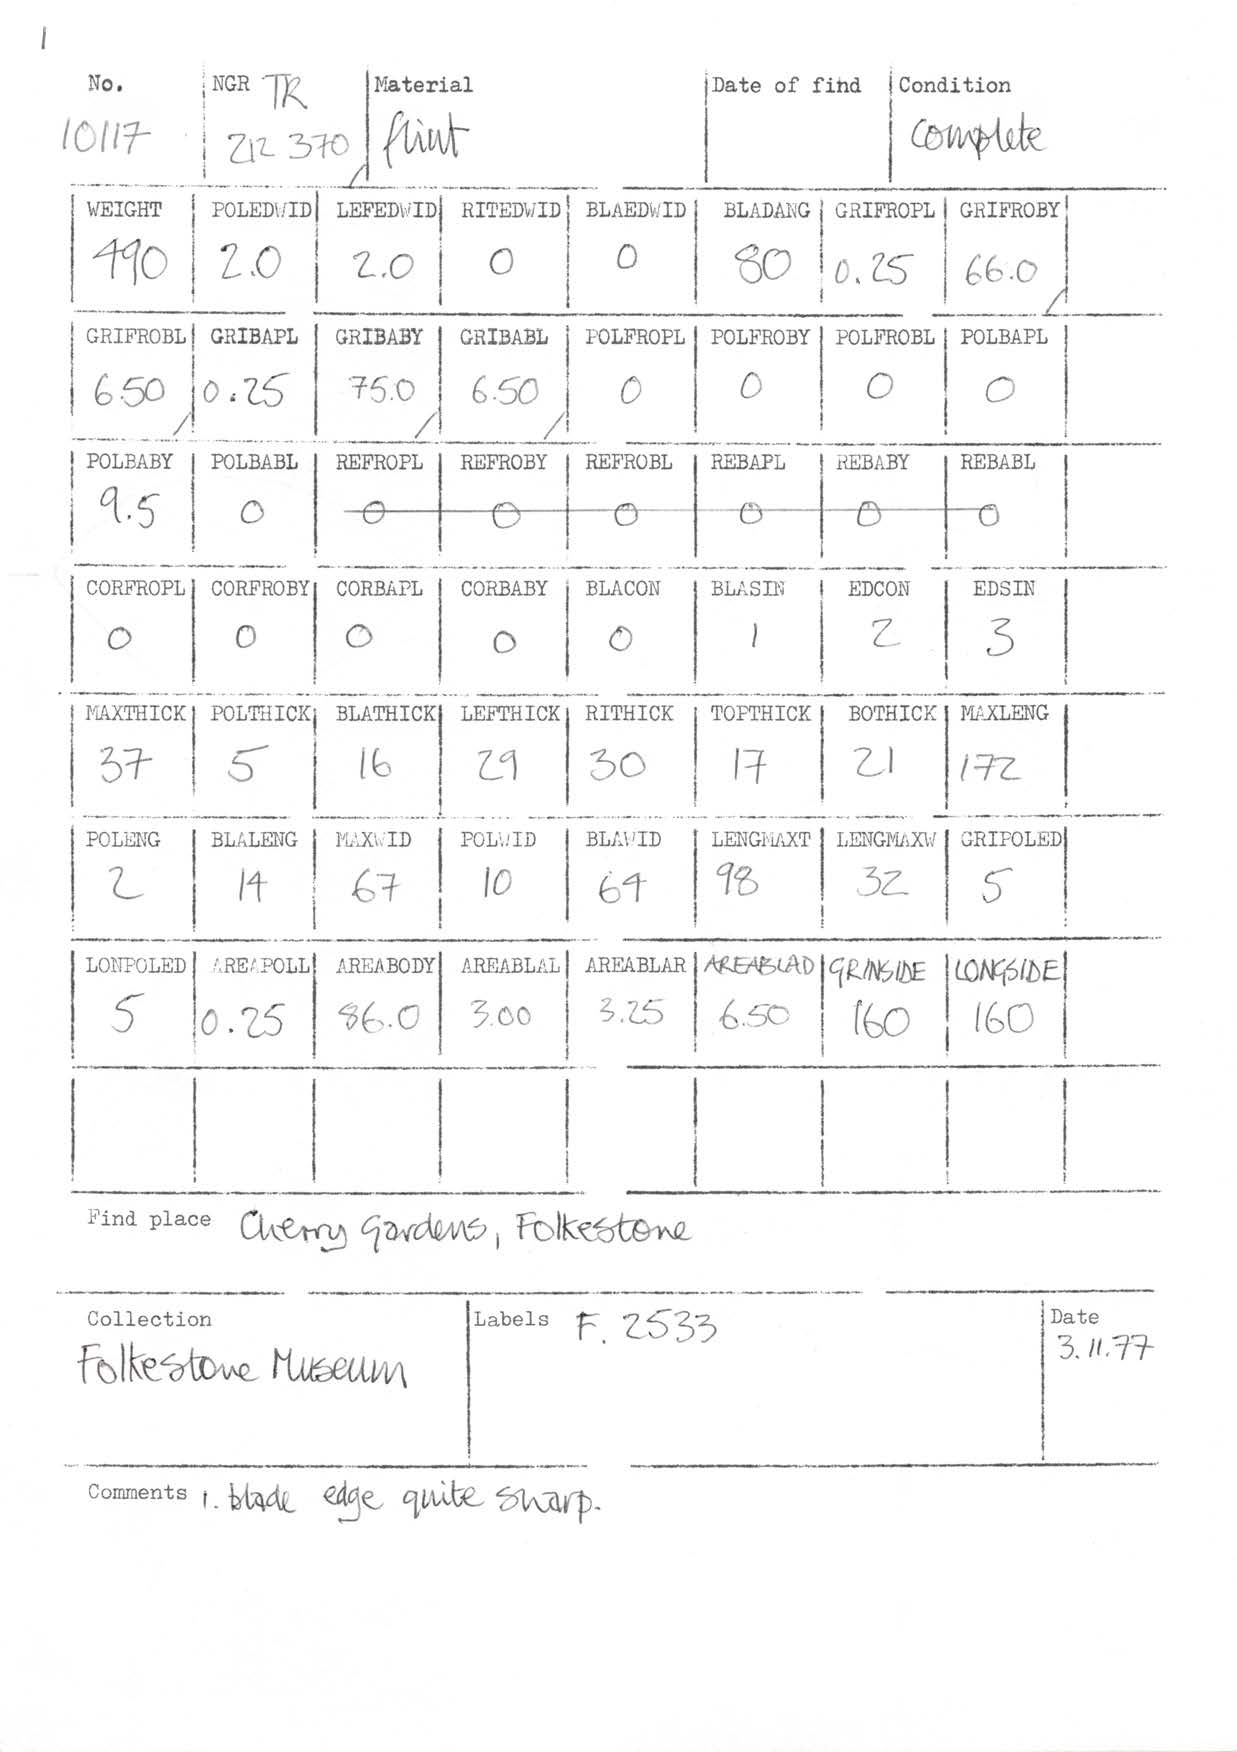 1
No. NGR TR Material Date of find Condition
10117 212 370 flint complete
WEIGHT POLEDWID LEFEDWID RITEDWID BLAEDWID BLADANG GRIFROPL GRIFROBY
490 2.0 2.0 0 0 80 0.25 66.0
GRIFROBL GRIBAPL GRIBABY GRIBABL POLFROPL POLFROBY POLFROBL POLBAPL
6.50 0.25 75.0 6.50 0 0 0 0
POLBABY POLBABL REFROPL REFROBY REFROBL REBAPL REBABY REBABL
9.5 0 0 0 0 0 0 0
CORFROPL CORFROBY CORBAPL CORBABY BLACON BLASIN EDCON EDSIN
0 0 0 0 0 1 2 3
MAXTHICK POLTHICK BLATHICK LEFTHICK RITHICK TOPTHICK BOTHICK MAXLENG
37 5 16 29 30 17 21 172
POLENG BLALENG MAXWID POLWID BLAWID LENGMAXT LENGMAXW GRIPOLED
2 14 67 10 64 98 32 5
LONPOLED AREAPOLL AREABODY AREABLAL AREABLAR AREABLAD GRINSIDE LONGSIDE
5 0.25 86.0 3.00 3.25 6.50 160 160
Find place Cherry Gardens, Folkestone
Collection Labels F. 2533 Date
Folkestone Museum 3.11.77
Comments 1. blade edge quite sharp.